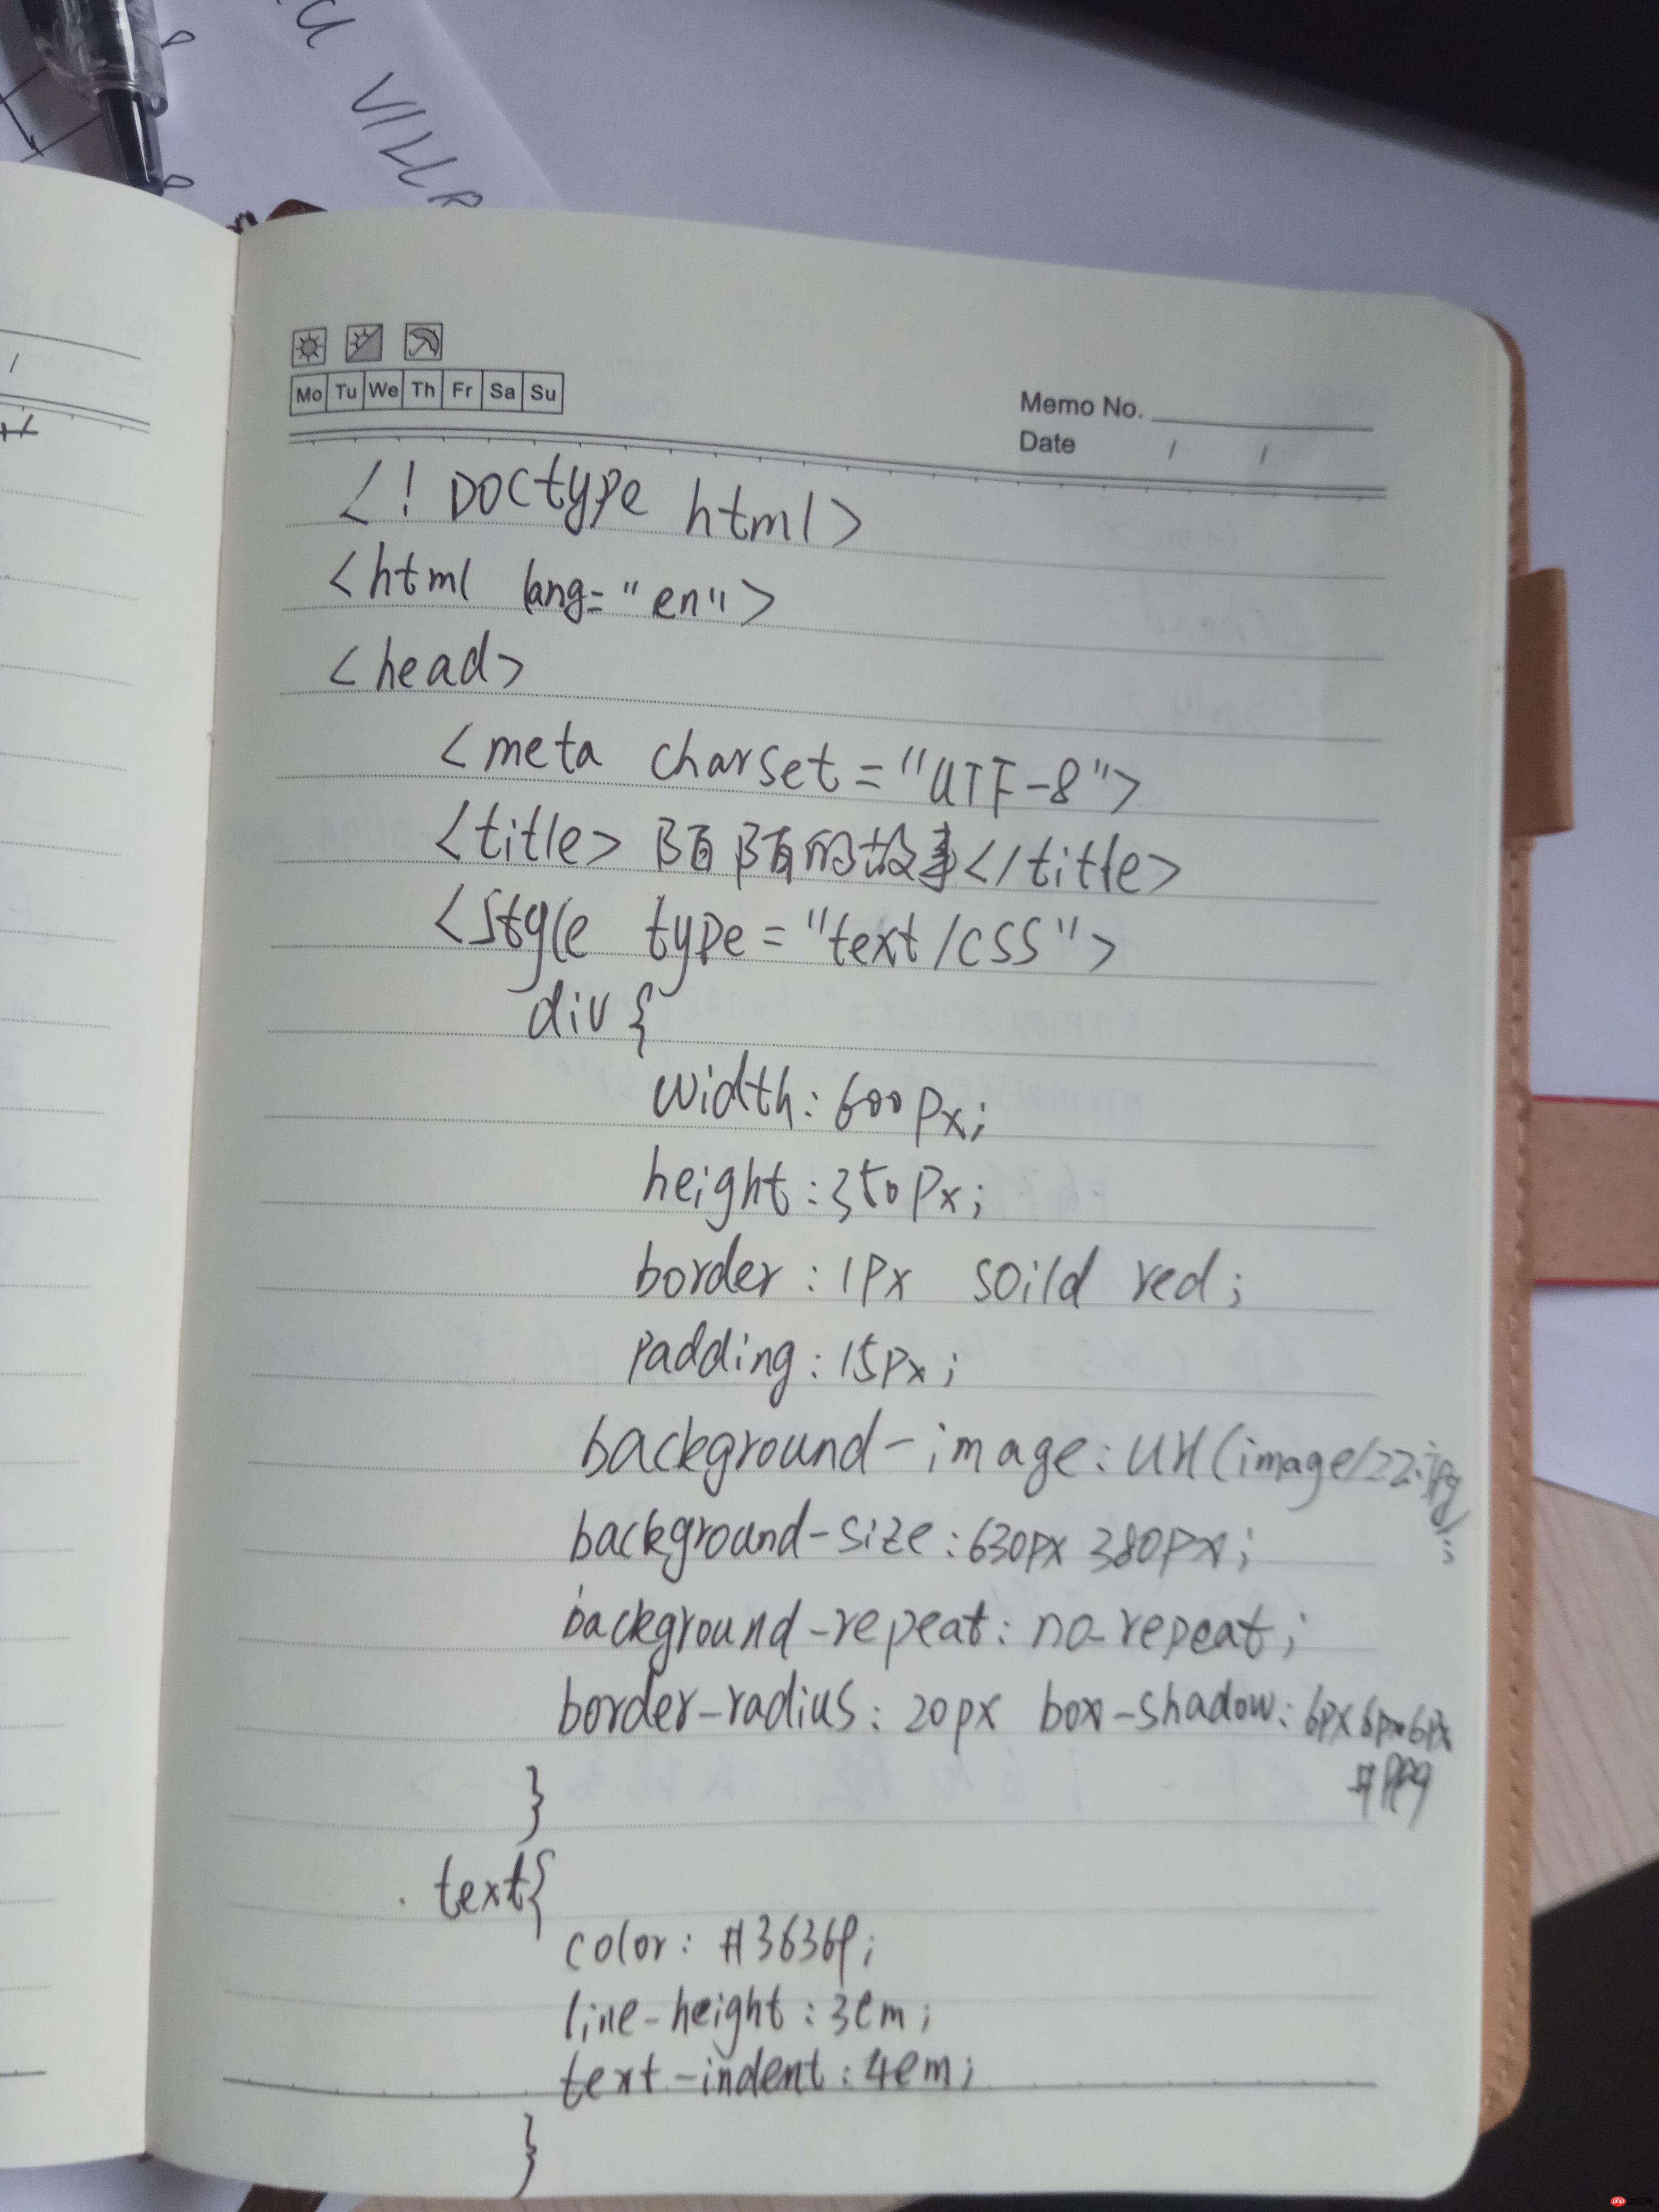 VILLA
Mo Tu We Th Fr Sa Su
Memo No.
Date / /
<! DOCtype html>
<html lang="en">
<head>
<meta charset="UTF-8">
<title>陌陌的故事</title>
<style type="text/css">
div{
width:600px;
height:350px;
border:1px soild red;
padding:15px;
background-image:url(image/22.jpg);
background-size:630px 380px;
background-repeat:no-repeat;
border-radius:20px box-shadow:6px 6px 6px
}
.text{
line-height:3em;
text-indent:4em;
}
php中文网